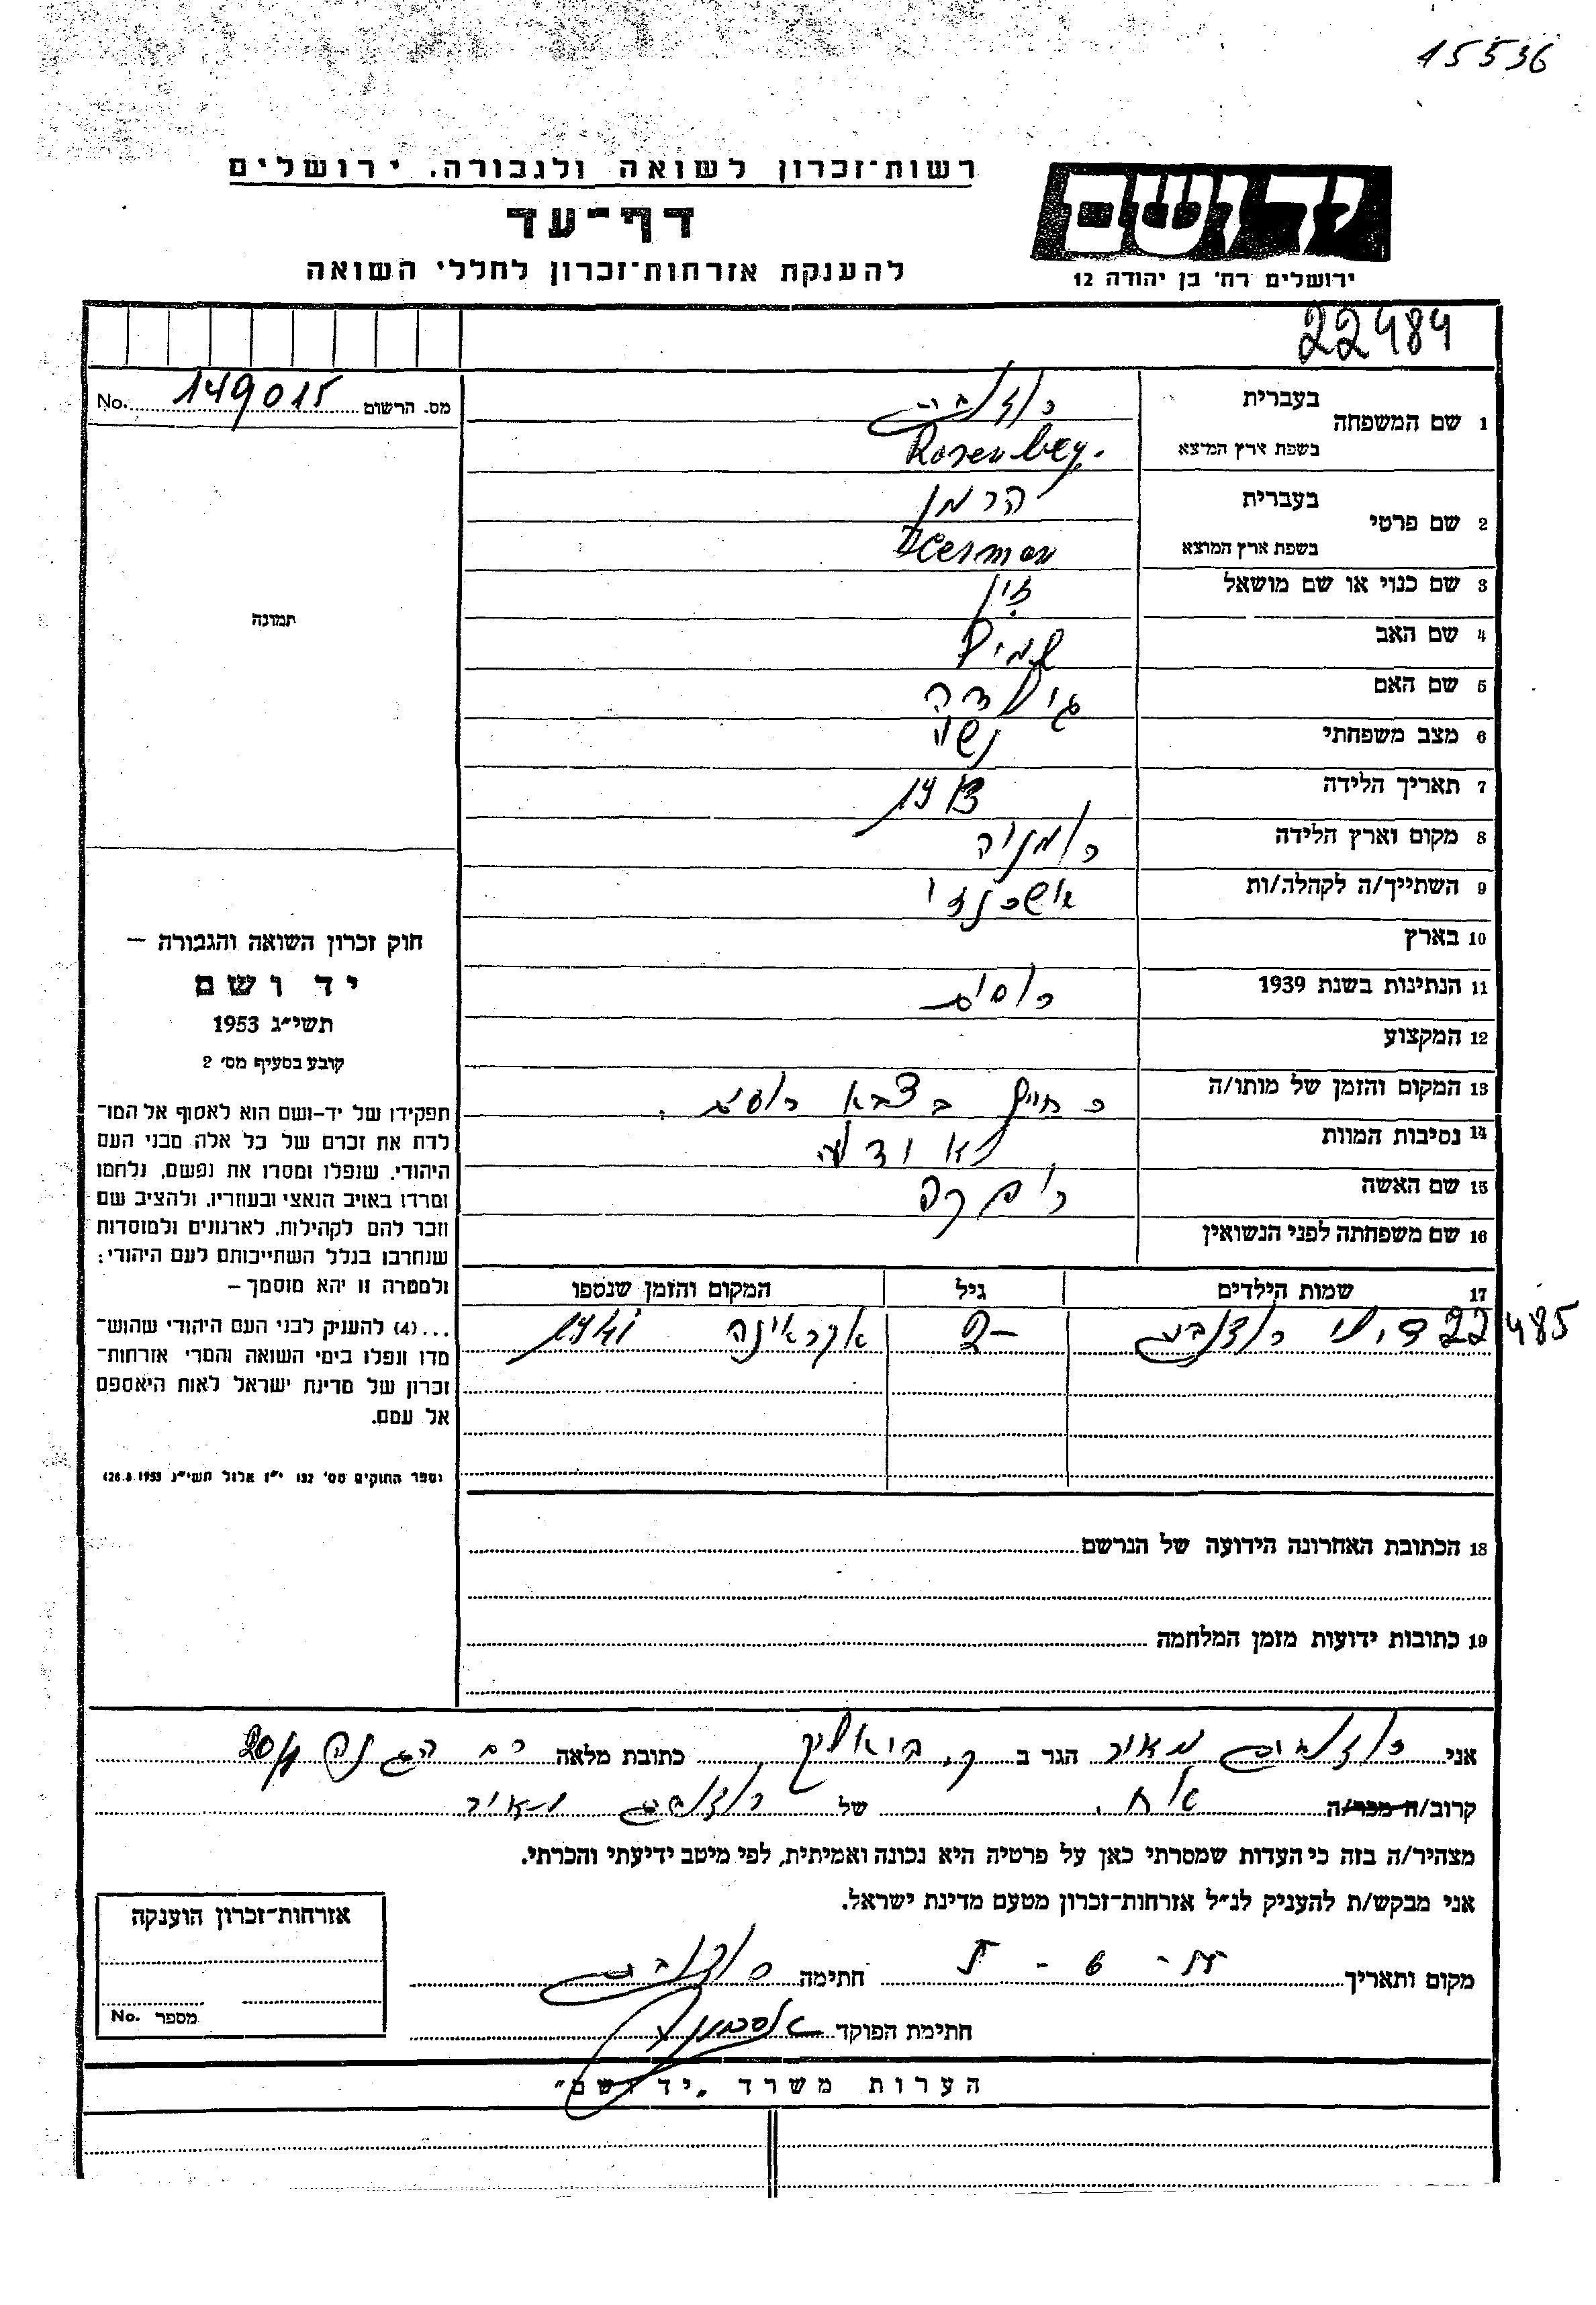 15536
רשות־זכרון לשואה ולגבורה. ירושלים
דף־עד
להענקת אזרחות־זכרון לחללי השואה
יד ושם
ירושלים רח' בן יהודה 12
22484
מס. הרשום 149015 No.
תמונה
1 שם המשפחה
בעברית רוזנברג
בשפת ארץ המוצא Rosenberg.
2 שם פרטי
בעברית הרמן
בשפת ארץ המוצא Herman
3 שם כנוי או שם מושאל
4 שם האב שמיל
5 שם האם גולדה
6 מצב משפחתי נשוי
7 תאריך הלידה 1913
8 מקום וארץ הלידה רומניה
9 השתייך/ה לקהלה/ות אשכנזי
10 בארץ
11 הנתינות בשנת 1939 רוסית
12 המקצוע
13 המקום והזמן של מותו/ה כחייל בצבא רוסי
14 נסיבות המוות לא ידוע
15 שם האשה רבקה
16 שם משפחתה לפני הנשואין
17 שמות הילדים גיל המקום והזמן שנספו
22485 רוזנברג 2- אקראינה 1941
18 הכתובת האחרונה הידועה של הנרשם
19 כתובות ידועות מזמן המלחמה
חוק זכרון השואה והגבורה –
יד ושם
תשי״ג 1953
קובע בסעיף מס׳ 2
תפקידו של יד-ושם הוא לאסוף אל המו־
לדת את זכרם של כל אלה מבני העם
היהודי. שנפלו ומסרו את נפשם, נלחמו
ומרדו באויב הנאצי ובעוזריו, ולהציב שם
וזכר להם לקהילות, לארגונים ולמוסדות
שנחרבו בגלל השתייכותם לעם היהודי:
ולמטרה זו יהא מוסמך –
...(4) להעניק לבני העם היהודי שהוש־
מדו ונפלו בימי השואה והמרי אזרחות־
זכרון של מדינת ישראל לאות היאספם
אל עמם.
(ספר החוקים מס׳ 132 י״ז אלול תשי״ג 26.8.1953)
אני רוזנברג מאיר הגר ב ק. ביאליק כתובת מלאה רח ההגנה 20/1
קרוב/ה מכר/ה אח. של רוזנברג מאיר
מצהיר/ה בזה כי העדות שמסרתי כאן על פרטיה היא נכונה ואמיתית, לפי מיטב ידיעתי והכרתי.
אני מבקש/ת להעניק לנ״ל אזרחות־זכרון מטעם מדינת ישראל.
מקום ותאריך חתימה רוזנברג
חתימת הפוקד
אזרחות־זכרון הוענקה
מספר No.
הערות משרד „יד ושם״